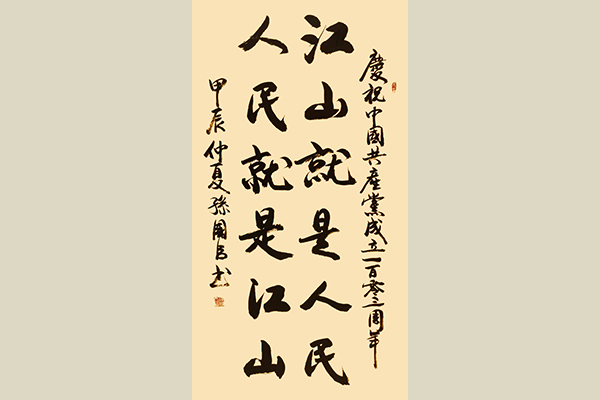 慶祝中國共産黨成立一百零三周年
江山就是人民
人民就是江山
甲辰仲夏孫国书